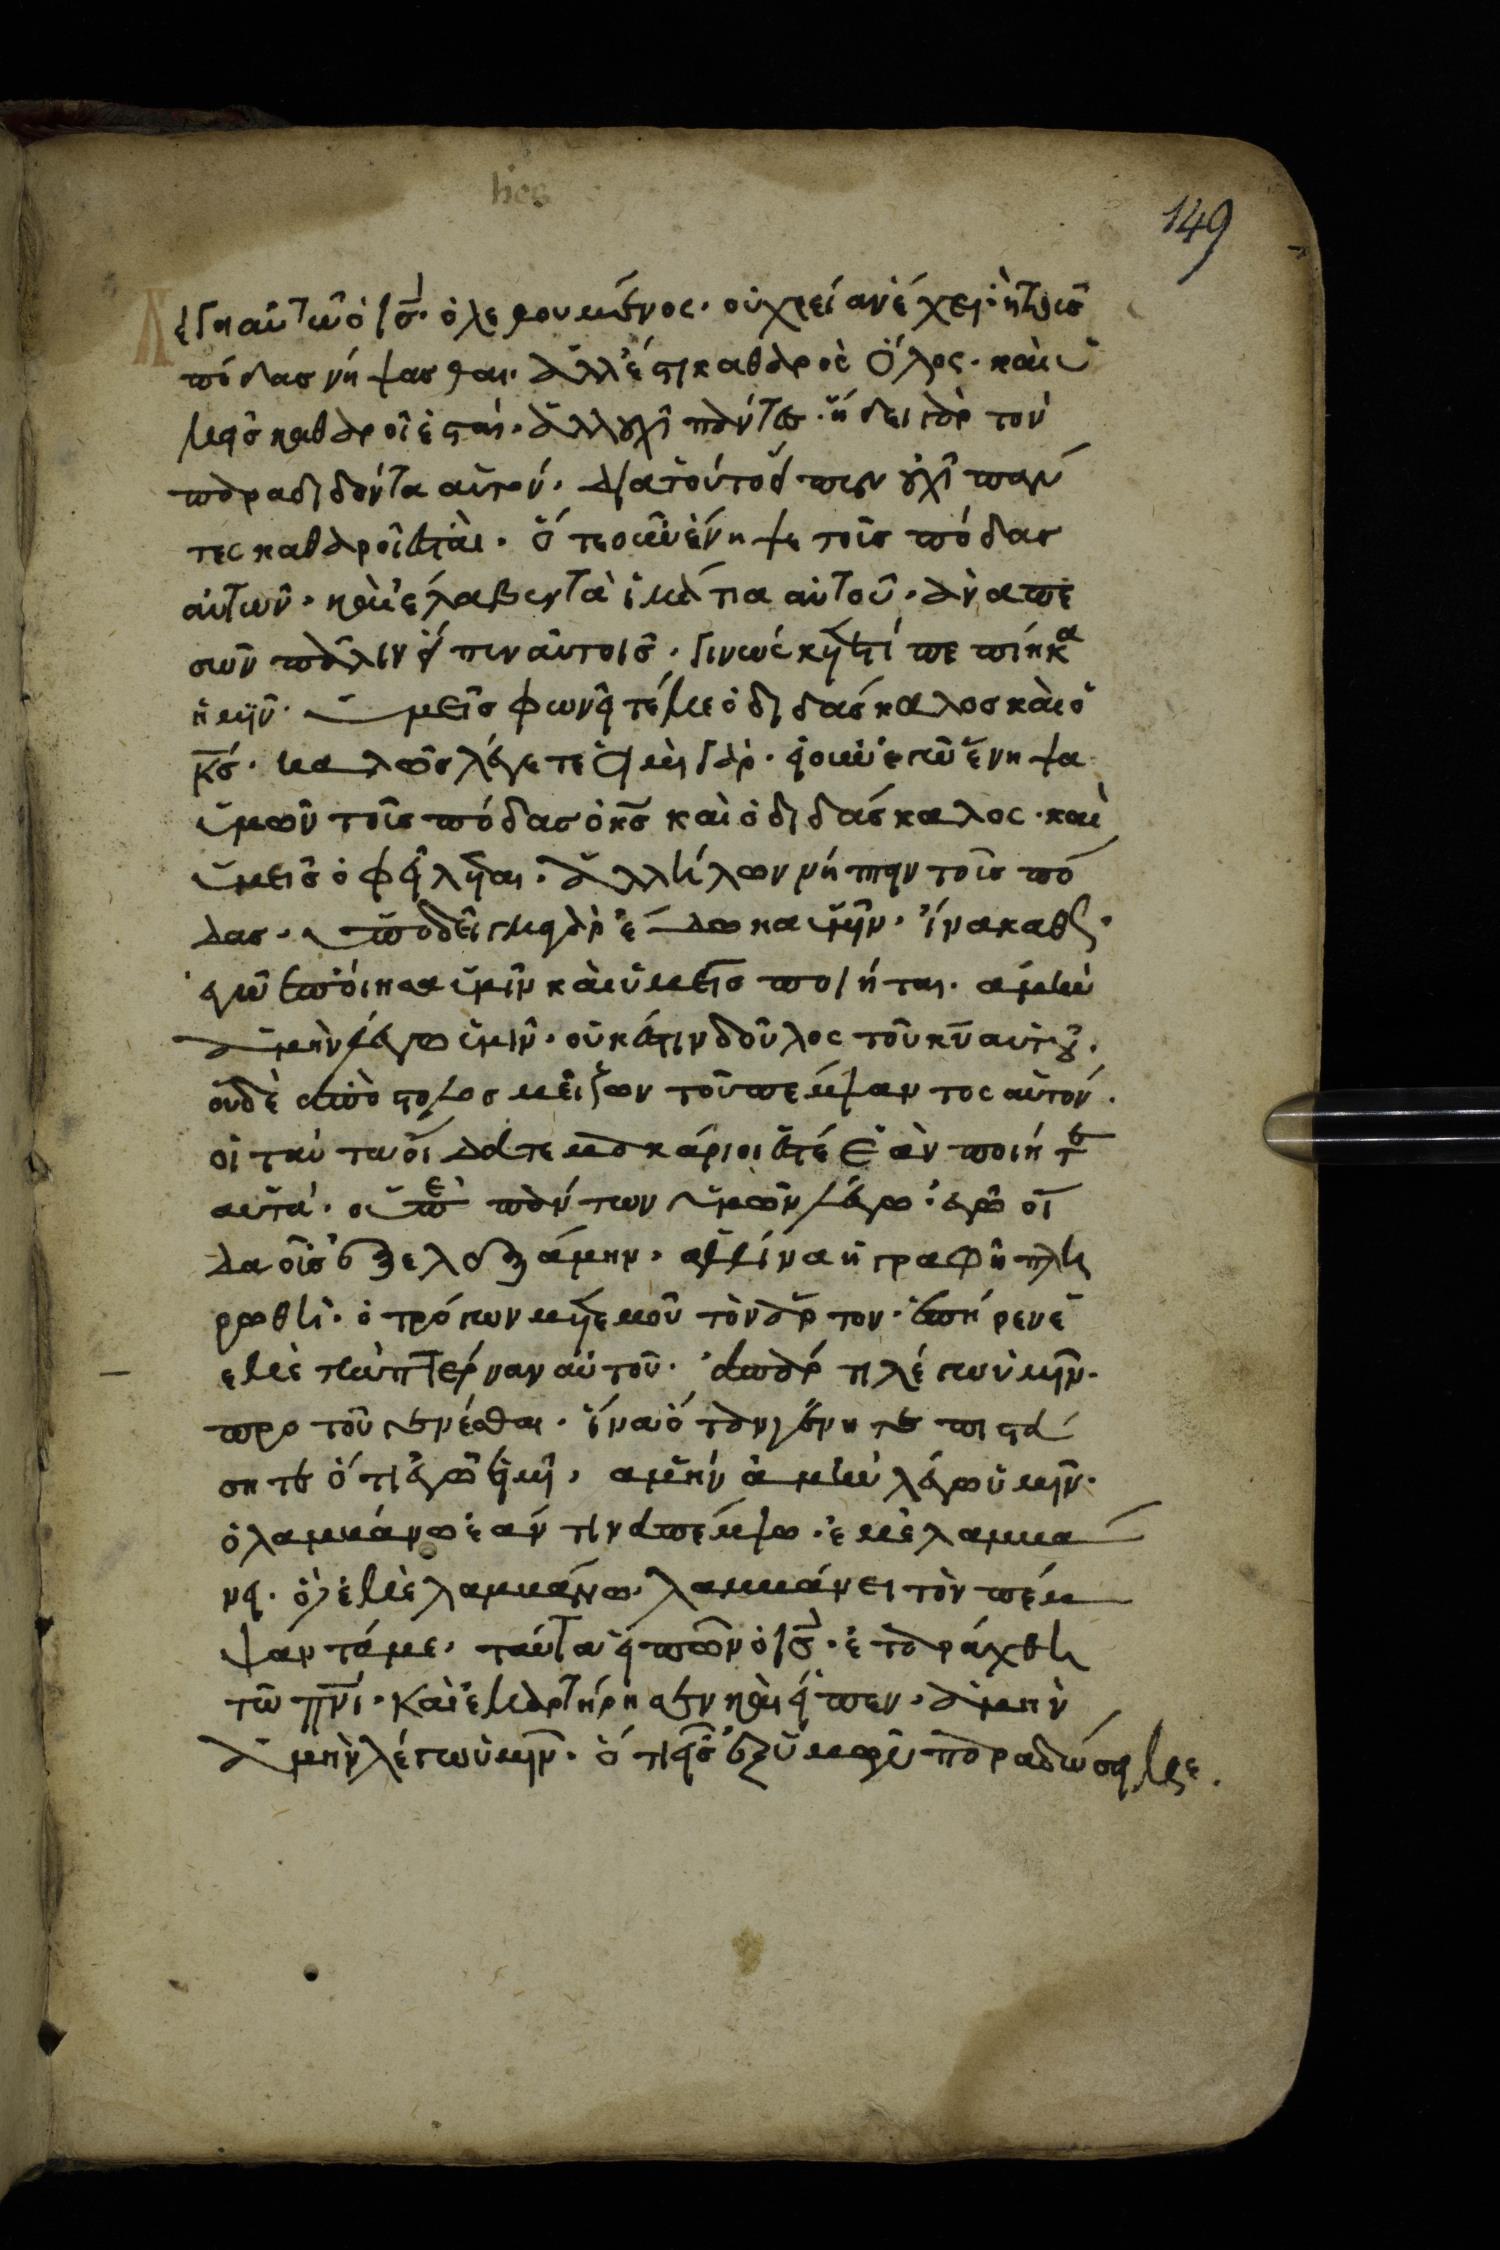 149
Λέγει αὐτῶ ὁ ισ· ὁ λελουμένος· οὐ χρείαν ἔχει· ἢ τοὺς
πόδας νήψασθαι· ἀλλ' ἔστι καθαρὸς ὅλος· καὶ ὑ
μεῖς καθαροῖ ἐσταί· ἀλλ' οὐχὶ πάντες· ἤδει γὰρ τὸν
παραδιδόντα αὐτόν· διατοῦτο εἶπεν οὐχὶ πάν
τες καθαροῖ ἐσταὶ· ὅτε οὖν ἔνηψε τοῖς πόδας
αὐτῶν· καὶ ἔλαβεν τὰ ἱμάτια αὐτοῦ· ἀναπε
σῶν πάλιν εἶπεν αὐτοῖς· γινώσκηται τί πεποίηκα
ἡμῖν· ὑμεῖς φωνεῖτέ με ὁ διδάσκαλος καὶ ὁ
κς· καλῶς λέγετε εἰμὶ γάρ· εἰ οὖν ἐγὼ ἔνηψα
ὑμῶν τοῖς πόδας ὁ κς καὶ ὁ διδάσκαλος· καὶ
ὑμεῖς ὀφείληται· ἀλλήλων νήπτην τοῖς πό
δας· ὑπόδειγμα γὰρ ἔδωκα ὑμῖν· ἵνα καθὼς
ἐγὼ ἐποίησα ὑμῖν καὶ ὑμεῖς ποιήται· ἀμὴν
ἀμὴν λέγω ὑμῖν· οὐκ ἔστιν δοῦλος τοῦ κυ αὐτοῦ·
οὐδὲ ἀπόστολος μείζων τοῦ πέμψαντος αὐτόν·
οἱ ταύτα οἴδατε μακάριοι ἐστέ ἐὰν ποιήτε
αὐτά· οὐ περὶ πάντων ὑμῶν λέγω· ἐγὼ οἶ
δα οἷς ἐξελεξάμην· ἀλλ' ἵνα ἡ γραφὴ πλη
ρωθῆ· ὁ τρόγων μετεμοῦ τὸν ἄρτον· ἐπήρεν ἐ
π' ἐμὲ τὴν πτέρναν αὐτοῦ· ἀπάρτι λέγω ὑμῖν·
προ τοῦ γενέσθαι· ἵνα ὅταν γένητε πιστεύ
σητε ὅτι ἐγὼ εἰμὶ· ἀμὴν ἀμὴν λέγω ὑμῖν·
ὁ λαμμάνων ἐάν τινα πέμψω· ἐμὲ λαμμά
νει· ὁ δὲ ἐμὲ λαμμάνων· λαμμάνει τὸν πέμ
ψαντά με· ταύτα εἰπὼν ὁ ισ· ἐταράχθη
τῶ πνι· καὶ ἐμαρτήρησεν καὶ εἶπεν· ἀμὴν
ἀμὴν λέγω ὑμῖν· ὅτι εἷς ἐξ ὑμῶν παραδώσει με·